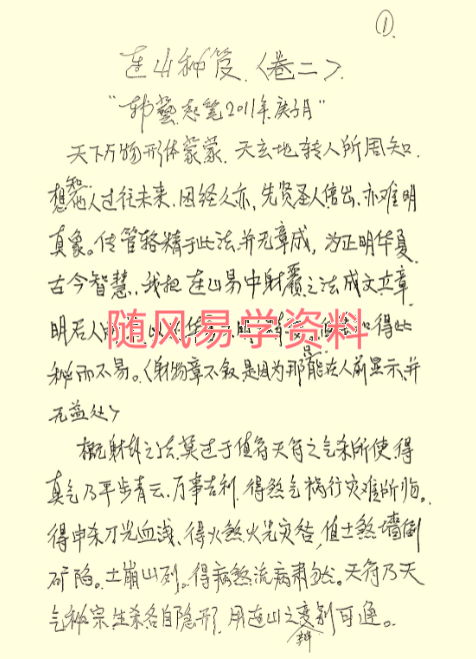 ①
连山神笈〈卷二〉
"韩艺起笔2011年庚子月"
天下万物形体蒙蒙、天玄地转人所周知.
想知他人过往未来、因经久亦,先贤圣人倍出、亦难明
真象。传管辂精于此法并无章成,为正明华夏
古今智慧、我把连山易中射覆之法成文立章
明后人
得此
秘而不易。〈射物章不叙是因为那能在人前显示、并
无益处〉
概射封之法莫过于值符天符之气杀所使、得
真气乃平步青云、万事吉利、得煞气祸行灾难所临。
得申杀刀光血浅、得火煞火光灾咎,值土煞墙倒
矿陷。土崩山列。得病煞流病肃然。天符乃天
气神宗生杀各自隐形、用连山之变别可通。
辨
随风易学资料